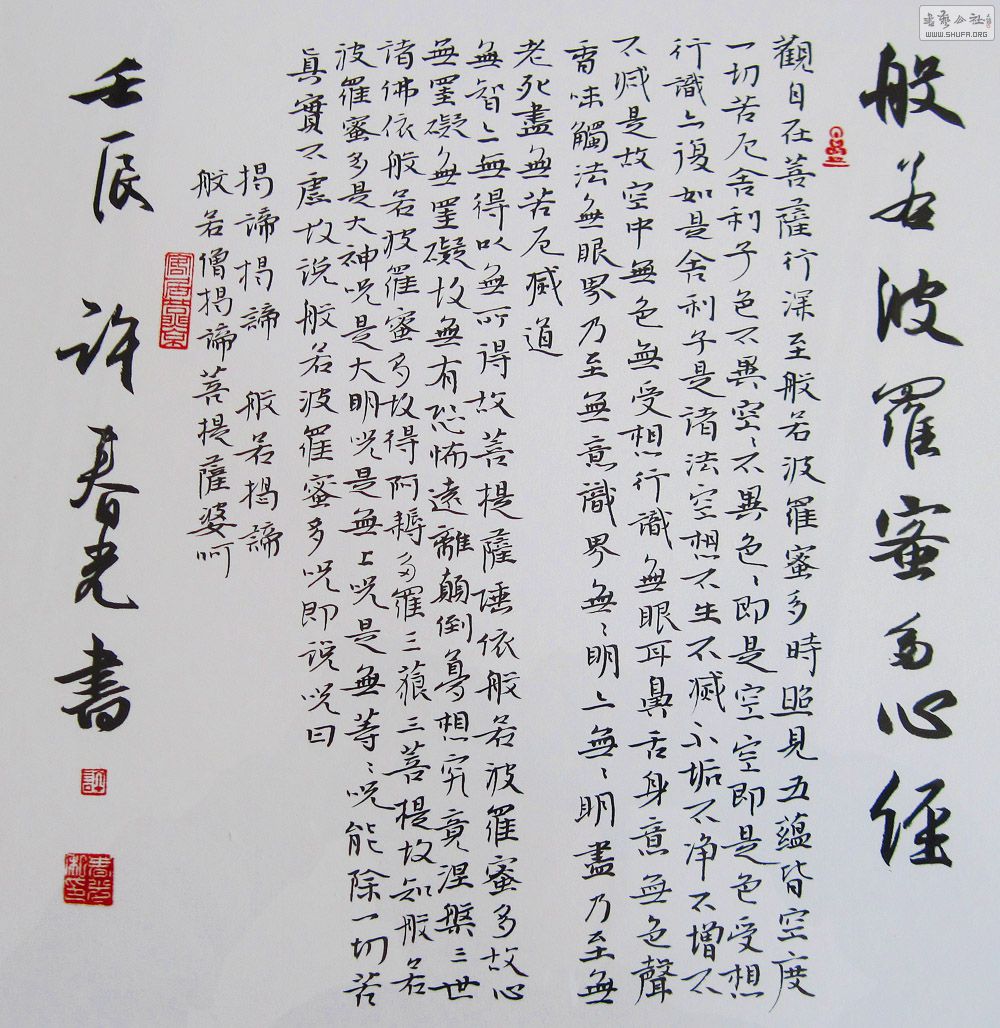 書藝公社
WWW.SHUFA.ORG
般若波羅蜜多心經
觀自在菩薩行深至般若波羅蜜多時照見五蘊皆空度
一切苦厄舍利子色不異空、不異色、即是空空即是色受想
行識亦復如是舍利子是諸法空想不生不滅不垢不净不增不
不減是故空中無色無受想行識無眼耳鼻舌身意無色聲
香味觸法無眼界乃至無意識界無、明亦無、明盡乃至無
老死盡無苦厄滅道
無智亦無得以無所得故菩提薩埵依般若波羅蜜多故心
無罣礙無罣礙故無有恐怖遠離顛倒夢想究竟涅槃三世
諸佛依般若波羅蜜多故得阿耨多羅三藐三菩提故知般若
波羅蜜多是大神咒是大明咒是無上咒是無等、咒能除一切苦
眞實不虛故説般若波羅蜜多咒即説咒曰
揭諦揭諦 般若揭諦
般若僧揭諦菩提薩婆呵
壬辰 許春光書
許